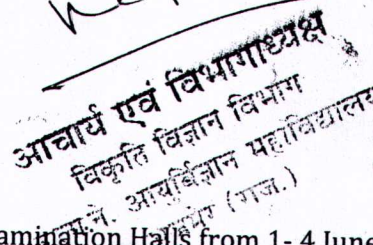 आचार्य एवं विभागाध्यक्ष
विकृति विज्ञान विभाग
ने. आयुर्विज्ञान महाविद्यालय
(राज.)
amination Halls from 1- 4 June